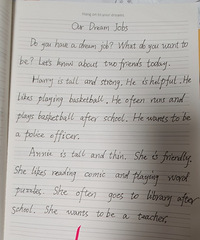 Our Dream Jobs
Do you have a dream job? What do you want to
be? Let's know about two friends today.
Harry is tall and strong. He is helpful. He
likes playing basketball. He often runs and
plays basketball after school. He wants to be
a police officer.
Annie is tall and thin. She is friendly.
She likes reading comic and playing word
puzzles. She often goes to library after
school. She wants to be a teacher.